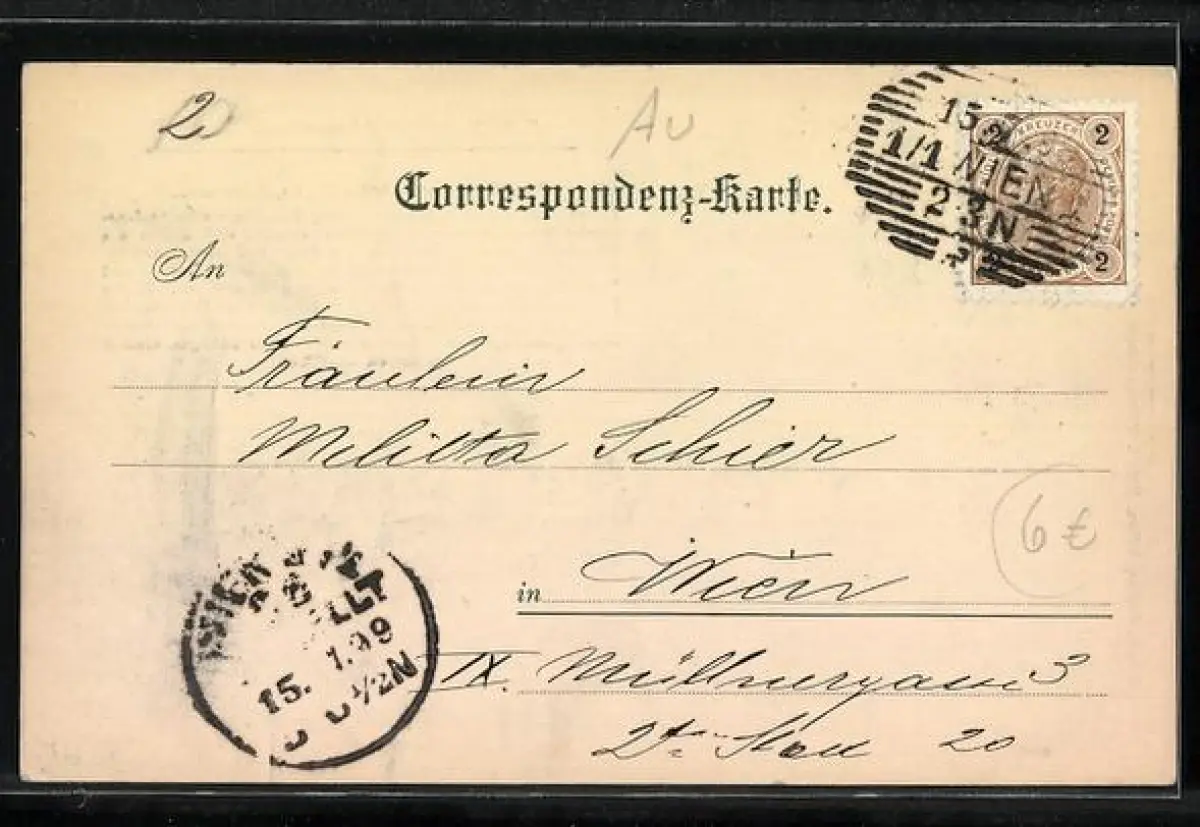 2
Au
Correspondenz-Karte.
15 2
1/1 WIEN 1
2·3N
2 KREUZER 2
2
An
Fräulein
Melitta Schier
6 €
in Wien
IX. Müllnergasse 3
2ter Stock 20
WIEN
BESTELLT
15. 1.99
½N